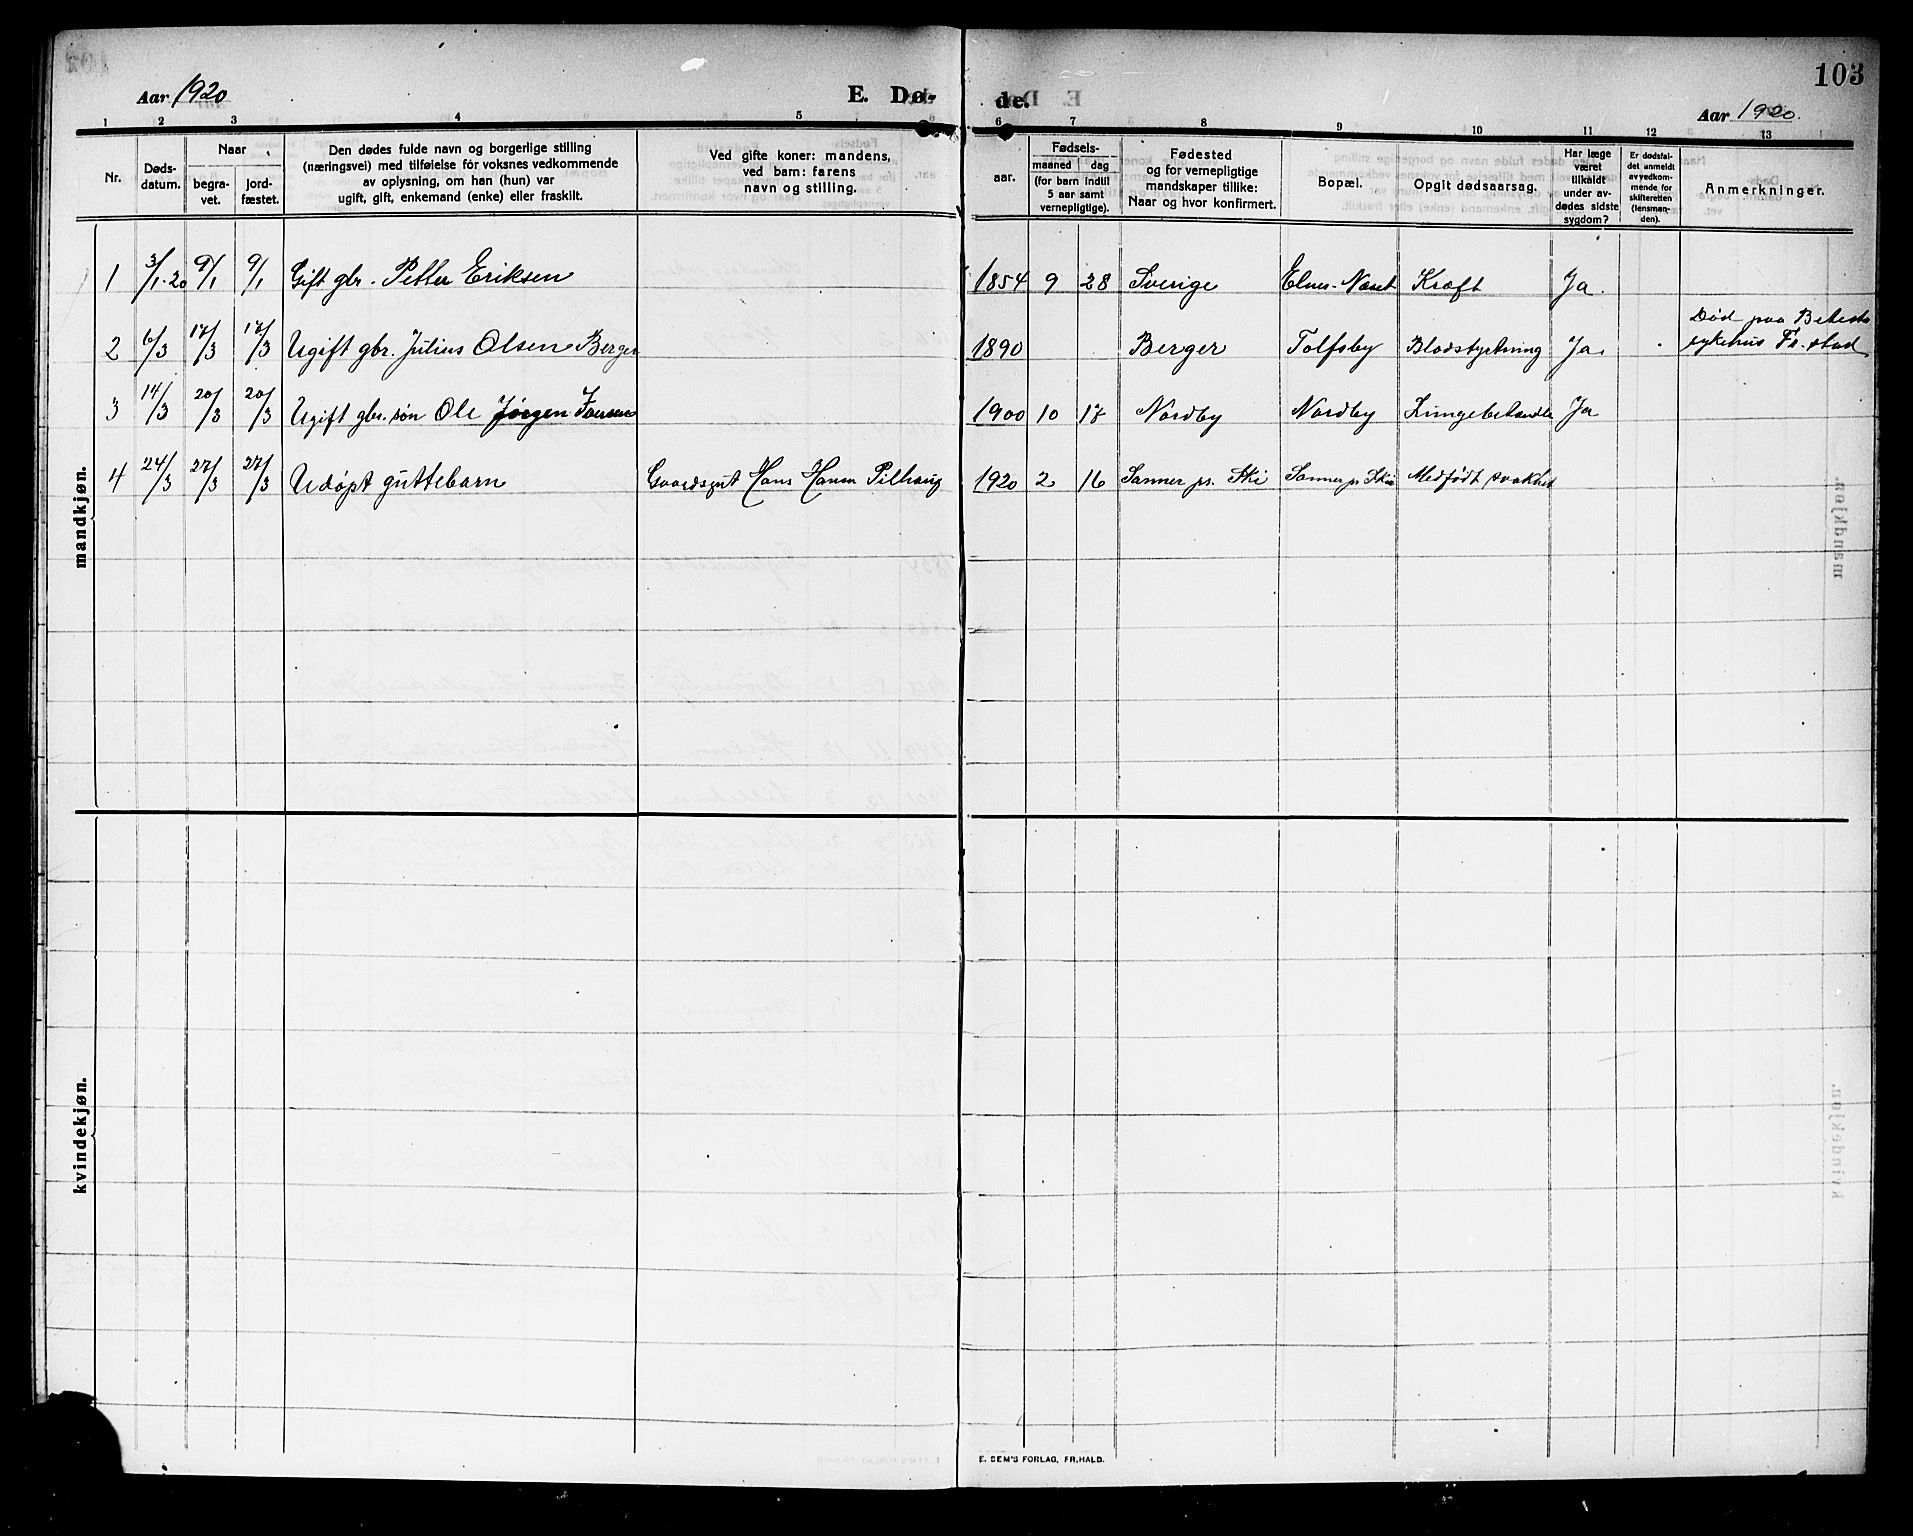 103
Aar 1920
E. Dø-
de.
Aar 1920.
1 2 3 4 5 6 7 8 9 10 11 12 13
Nr.
Døds-
datum.
Naar
begra-
vet.
jord-
fæstet.
Den dødes fulde navn og borgerlige stilling
(næringsvei) med tilføielse for voksnes vedkommende
av oplysning, om han (hun) var
ugift, gift, enkemand (enke) eller fraskilt.
Ved gifte koner: mandens,
ved barn: farens
navn og stilling.
aar.
Fødsels-
maaned dag
(for barn indtil
5 aar samt
vernepligtige).
Fødested
og for vernepligtige
mandskaper tillike:
Naar og hvor konfirmert.
Bopæl.
Opgit dødsaarsag.
Har læge
været
tilkaldt
under av-
dødes sidste
sygdom?
Er dødsfal-
det anmeldt
av vedkom-
mende for
skifteretten
(lensman-
den).
Anmerkninger.
mandkjøn.
1 3/1-20 9/1 9/1 Gift gbr. Petter Eriksen 1854 9 28 Sverige Elnes-Næset Kræft Ja.
2 6/3 17/3 17/3 Ugift gbr. Julius Olsen Berger 1890 Berger Tolfsby Blodstyrtning Ja. Død paa Betesta
sykehus Fr.stad
3 14/3 20/3 20/3 Ugift gbr.søn Ole Jørgen Iversen 1900 10 17 Nordby Nordby Lungebetændelse Ja
4 24/3 27/3 27/3 Udøpt guttebarn Gaardsgut Hans Hansen Pilhaug 1920 2 16 Sanner pr. Ski Sanner pr Ski Medfødt svakhet
kvindekjøn.
E. SEM'S FORLAG, FR.HALD.